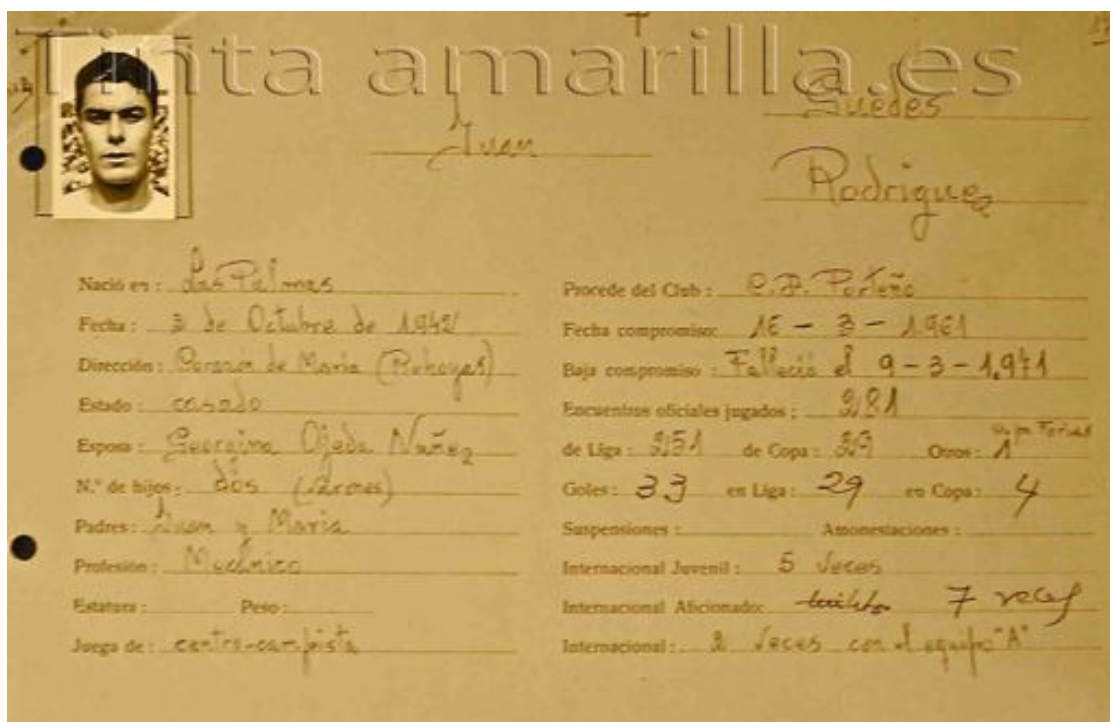 Tinta amarilla.es
Juan
Guedes
Rodriguez
Nació en: Las Palmas
Fecha: 3 de Octubre de 1942
Dirección: Corazón de María (Rehoyas)
Estado: casado
Esposa: Georgina Ojeda Nuñez
N.º de hijos: dos (varones)
Padres: Juan y María
Profesión: Mecánico
Estatura: Peso:
Juega de: centro-campista
Procede del Club: C.D. Porteño
Fecha compromiso: 16 - 3 - 1.961
Baja compromiso: Falleció el 9 - 3 - 1.971
Encuentros oficiales jugados: 281
de Liga: 251 de Copa: 29 Otros: 1 Ferias
Goles: 33 en Liga: 29 en Copa: 4
Suspensiones: Amonestaciones:
Internacional Juvenil: 5 Veces
Internacional Aficionado: 7 veces
Internacional: 2 Veces con el equipo "A"